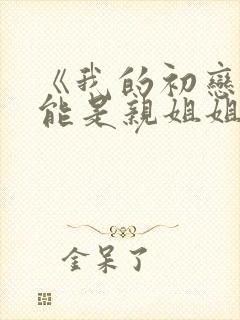 《我的初戀
能是親姐姐
金呆了